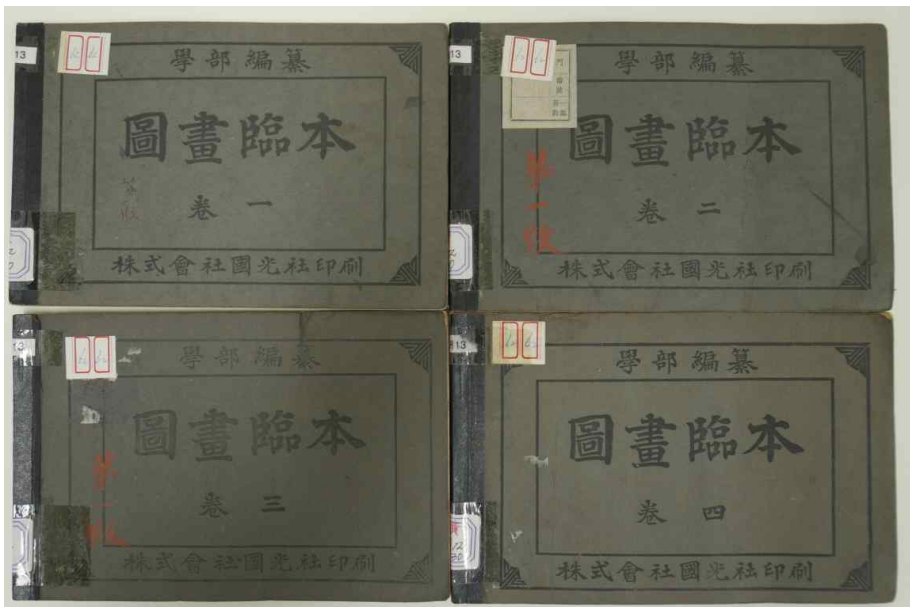 13
學部編纂
圖畫臨本
卷一
株式會社國光社印刷
13
學部編纂
圖畫臨本
卷二
株式會社國光社印刷
13
學部編纂
圖畫臨本
卷三
株式會社國光社印刷
13
學部編纂
圖畫臨本
卷四
株式會社國光社印刷